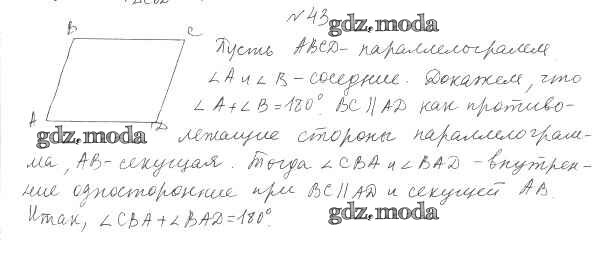 № 43
gdz.moda
B C
Пусть ABCD - параллелограмм
∠A и ∠B - соседние. Докажем, что
∠A + ∠B = 180°. BC ∥ AD как противо-
A D
gdz.moda лежащие стороны параллелограм-
ма, AB - секущая. Тогда ∠CBA и ∠BAD - внутрен-
ние односторонние при BC ∥ AD и секущей AB.
Итак, ∠CBA + ∠BAD = 180°.
gdz.moda